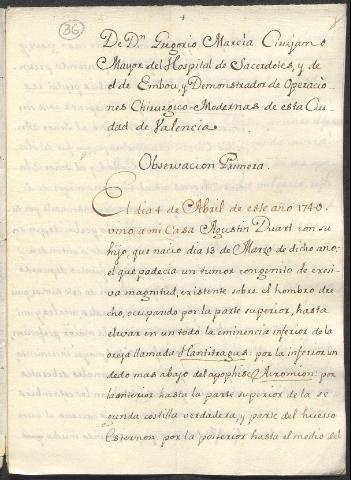 36
De Dn. Gregorio Marcìa Cirujano
Mayor del Hospital de Sacerdotes, y de
el de Embou, y Demonstrador de Operacio
nes Chirurgico-Modernas de esta Ciu
dad de Valencia.
Observacion Primera.
El dia 4 de Abril de este año 1740.
vino à mi Casa Agustin Duart con su
hijo, que nacio dia 13 de Marzo de dicho año:
el que padecia un tumor congenito de exesi
va magnitud, existente sobre el hombro dre
cho, ocupando por la parte superior, hasta
elevar en un todo la eminencia inferior de la
oreja llamada Hantitragus: por la inferior un
dedo mas abajo del apophise Acromion: por
la anterior hasta la parte superior de la se
gunda costilla verdadera, y parte del hueso
Esternon, por la posterior hasta el medio del